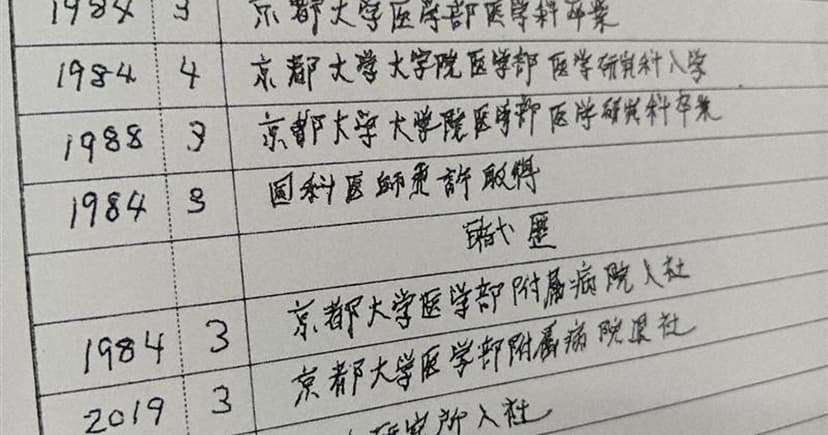 1984 3 京都大学医学部医学科卒業
1984 4 京都大学大学院医学部医学研究科入学
1988 3 京都大学大学院医学部医学研究科卒業
1984 3 科医師免許取得
職歴
1984 3 京都大学医学部附属病院入社
2019 3 京都大学医学部附属病院退社
研究所入社